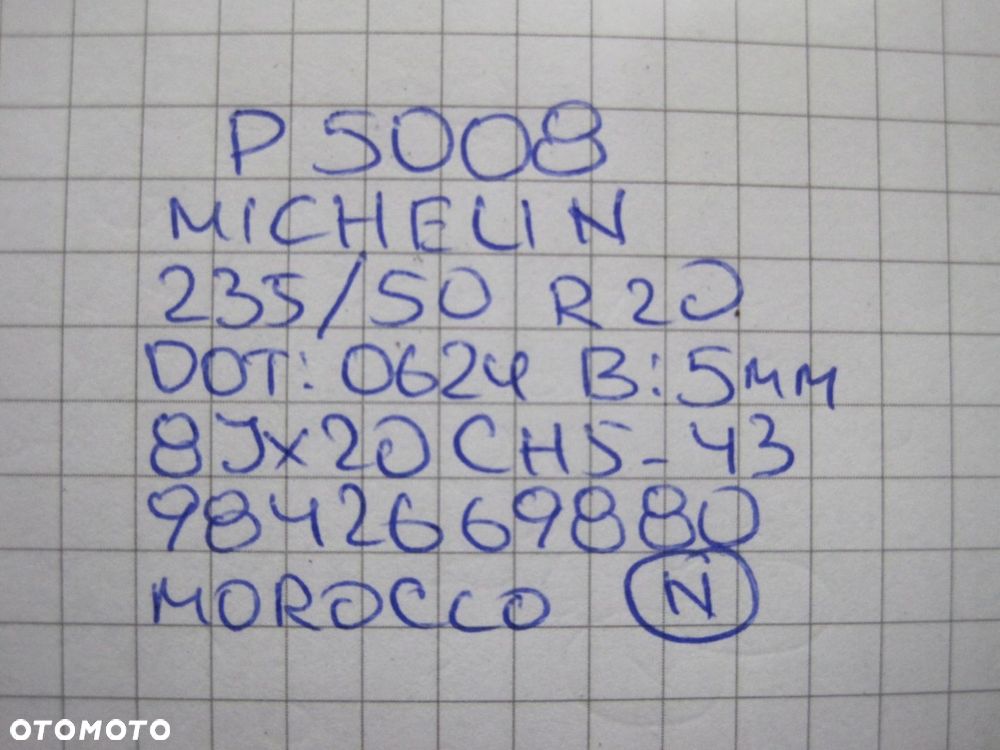 P 5008
MICHELIN
235/50 R20
DOT: 0624 B: 5MM
8Jx20 CH5-43
9842669880
MOROCCO N
OTOMOTO